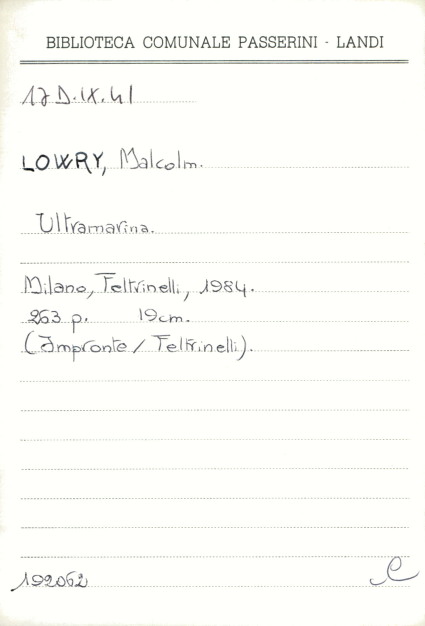 BIBLIOTECA COMUNALE PASSERINI - LANDI
17 D.IX.41
LOWRY, Malcolm.
Ultramarina.
Milano, Feltrinelli, 1984.
263 p. 19cm.
(Impronte / Feltrinelli).
192062 C